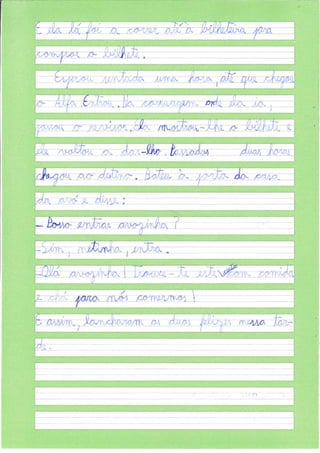 E ela lá foi a correr até à bilheteira para
comprar o bilhete.
Esperou sentada uma hora, até que chegou
o Alfa. Entrou. Na carruagem onde ela ia,
passou o revisor. Ela mostrou-lhe o bilhete e
ele voltou a dar-lho. Passadas duas horas
chegou ao destino. Bateu à porta da casa
da avó e disse:
- Posso entrar avozinha?
- Sim, netinha, entra.
- Olá avozinha! Trouxe-te este com comida
e chá para nós comermos!
E assim, lancharam as duas felizes nessa tar-
de.